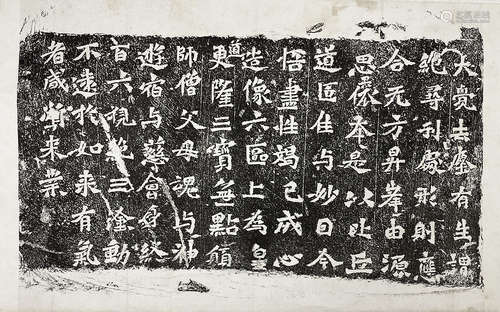 大覺去塵有生謂
絕尋刊形則應
合无方昇峯由源
思依本是以比丘
道匠住与妙因今
悟盡性竭己成心
造像六區上為皇
道更隆三寶無點願
師僧父母魂与神
遊宿与慧會身終
百六視絕三塗動
不遠於如來有氣
者咸漸來業